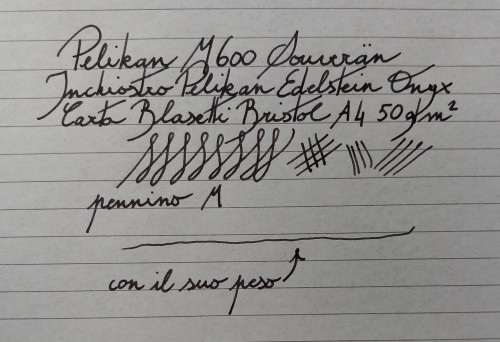 Pelikan M600 Souverän
Inchiostro Pelikan Edelstein Onyx
Carta Blasetti Bristol A4 50g/m²
pennino M
con il suo peso